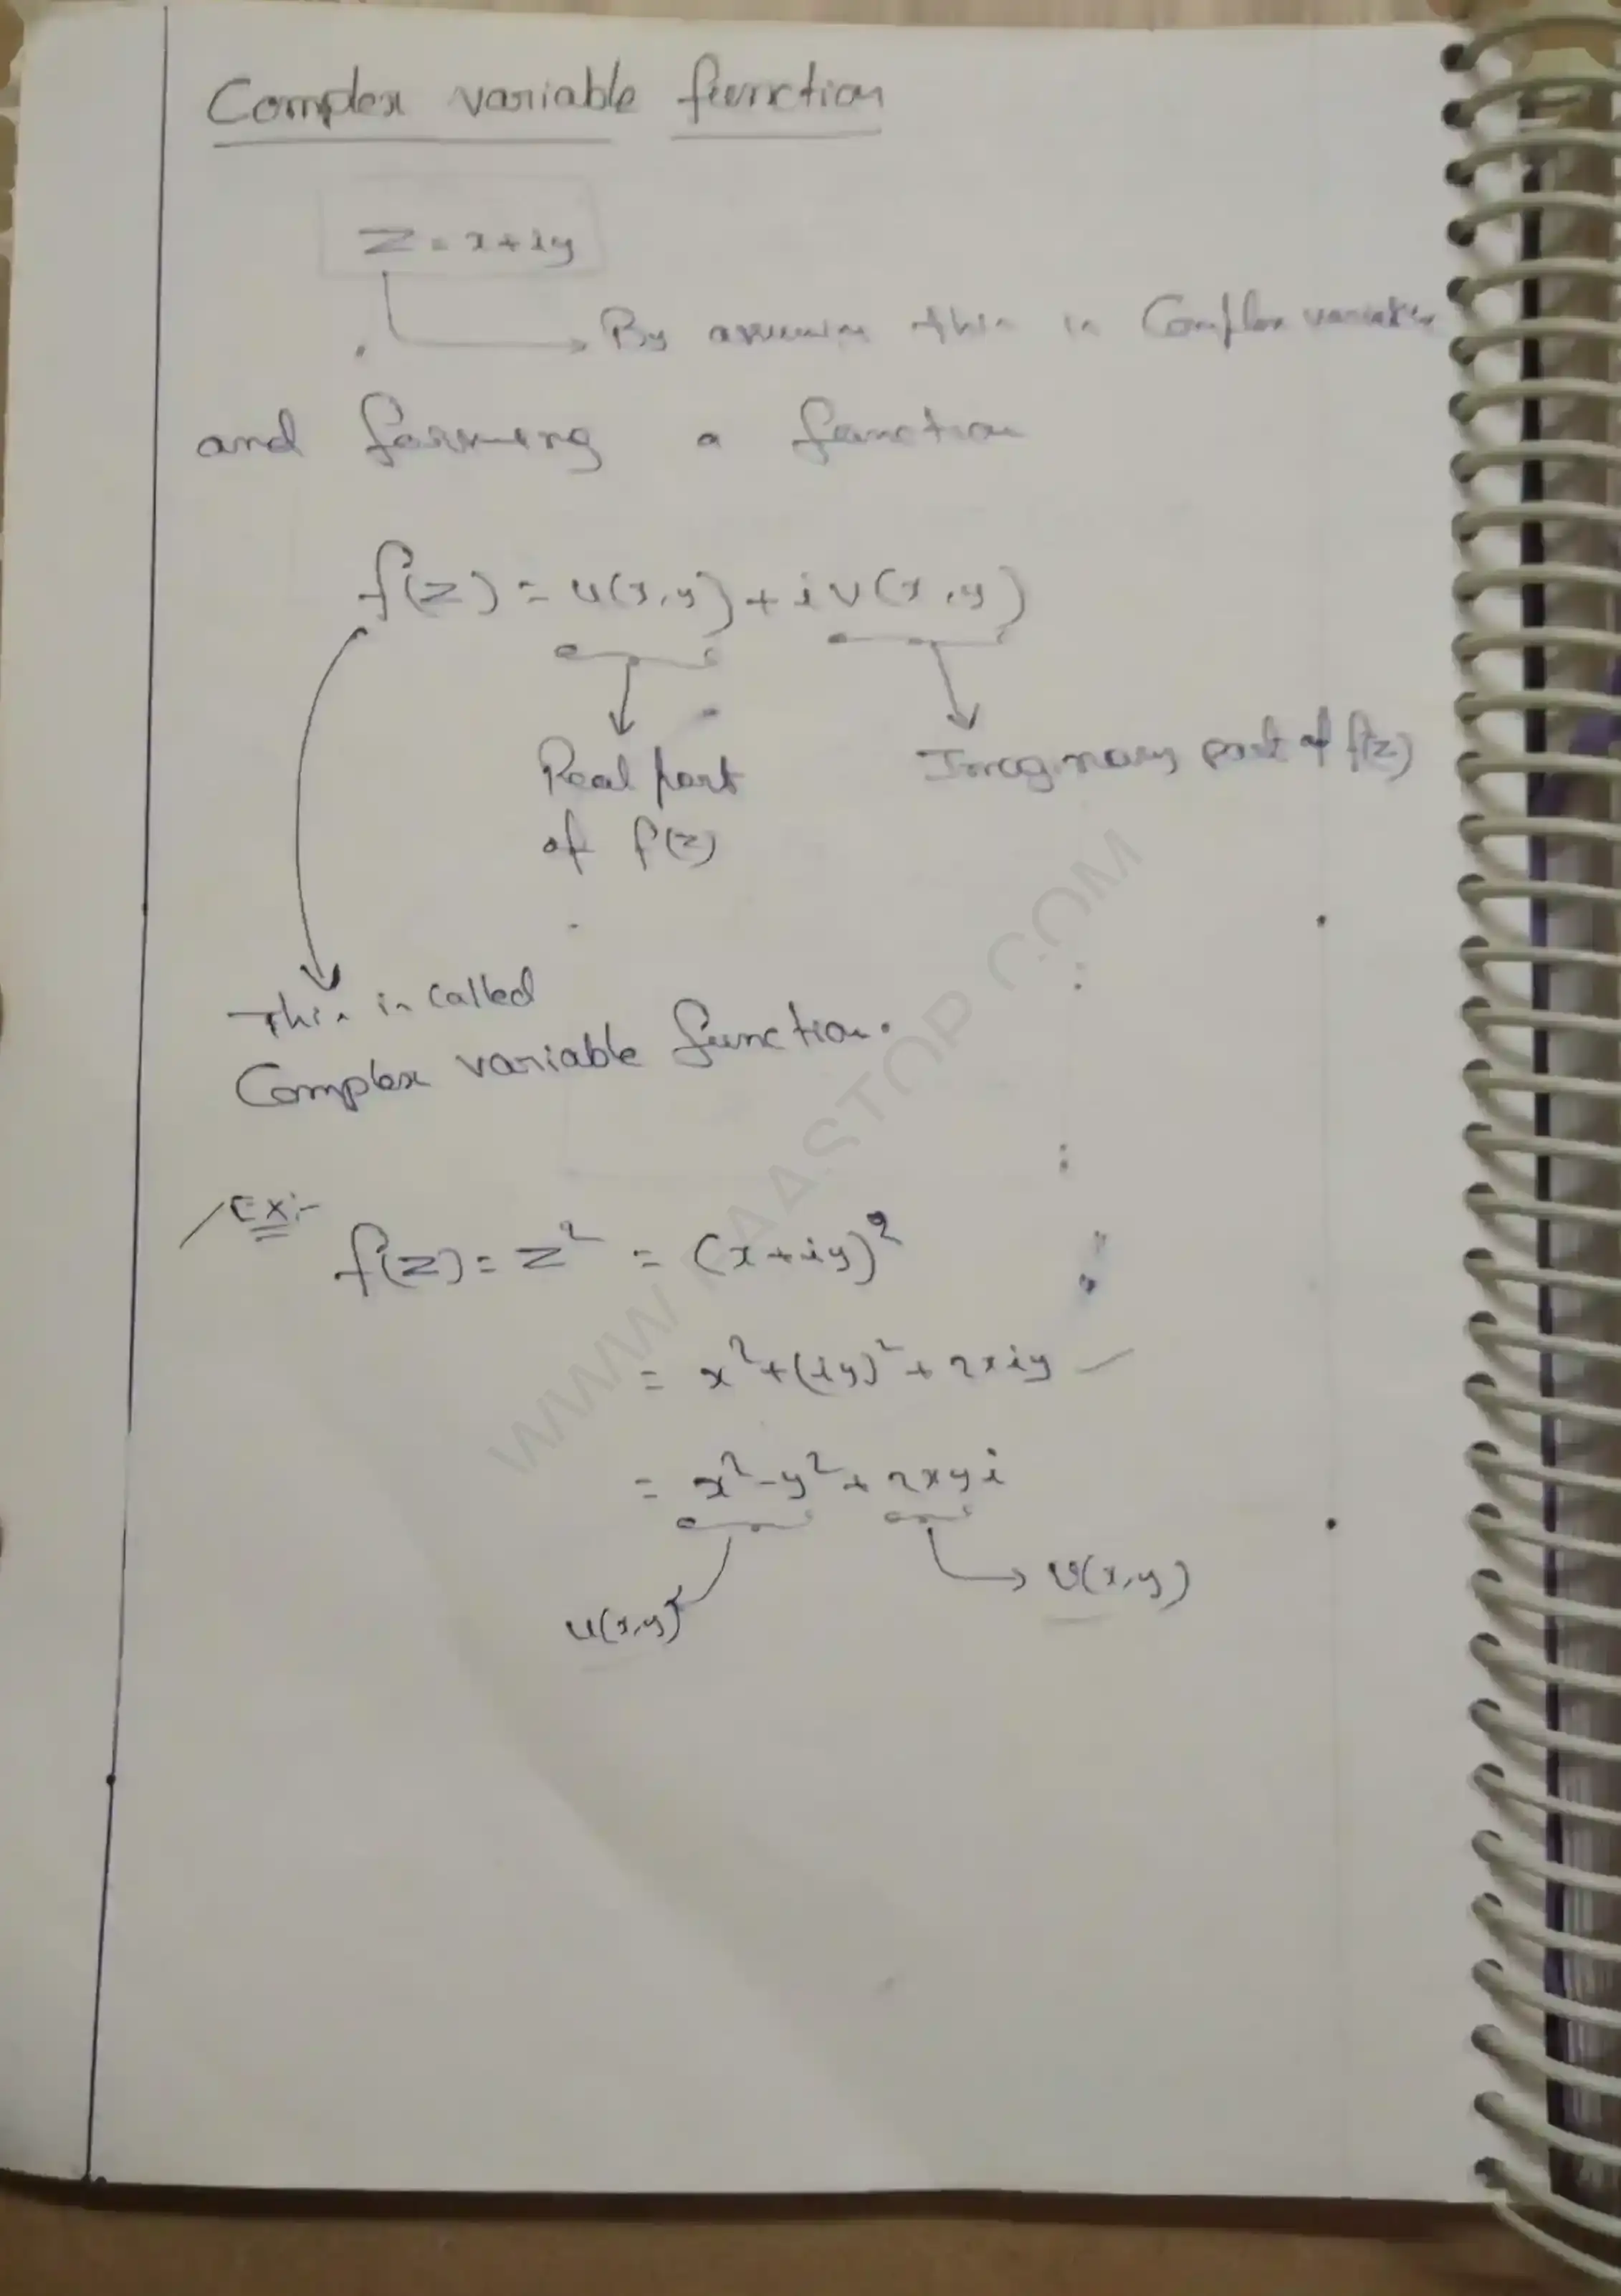 Complex variable function
z = x+iy
By assuming this is Complex variable
and forming a function
f(z) = u(x,y) + i v(x,y)
Real part
of f(z)
Imaginary part of f(z)
This is called
Complex variable function.
Ex:-
f(z) = z² = (x+iy)²
= x²+(iy)²+2xiy
= x²-y²+2xyi
u(x,y)
v(x,y)